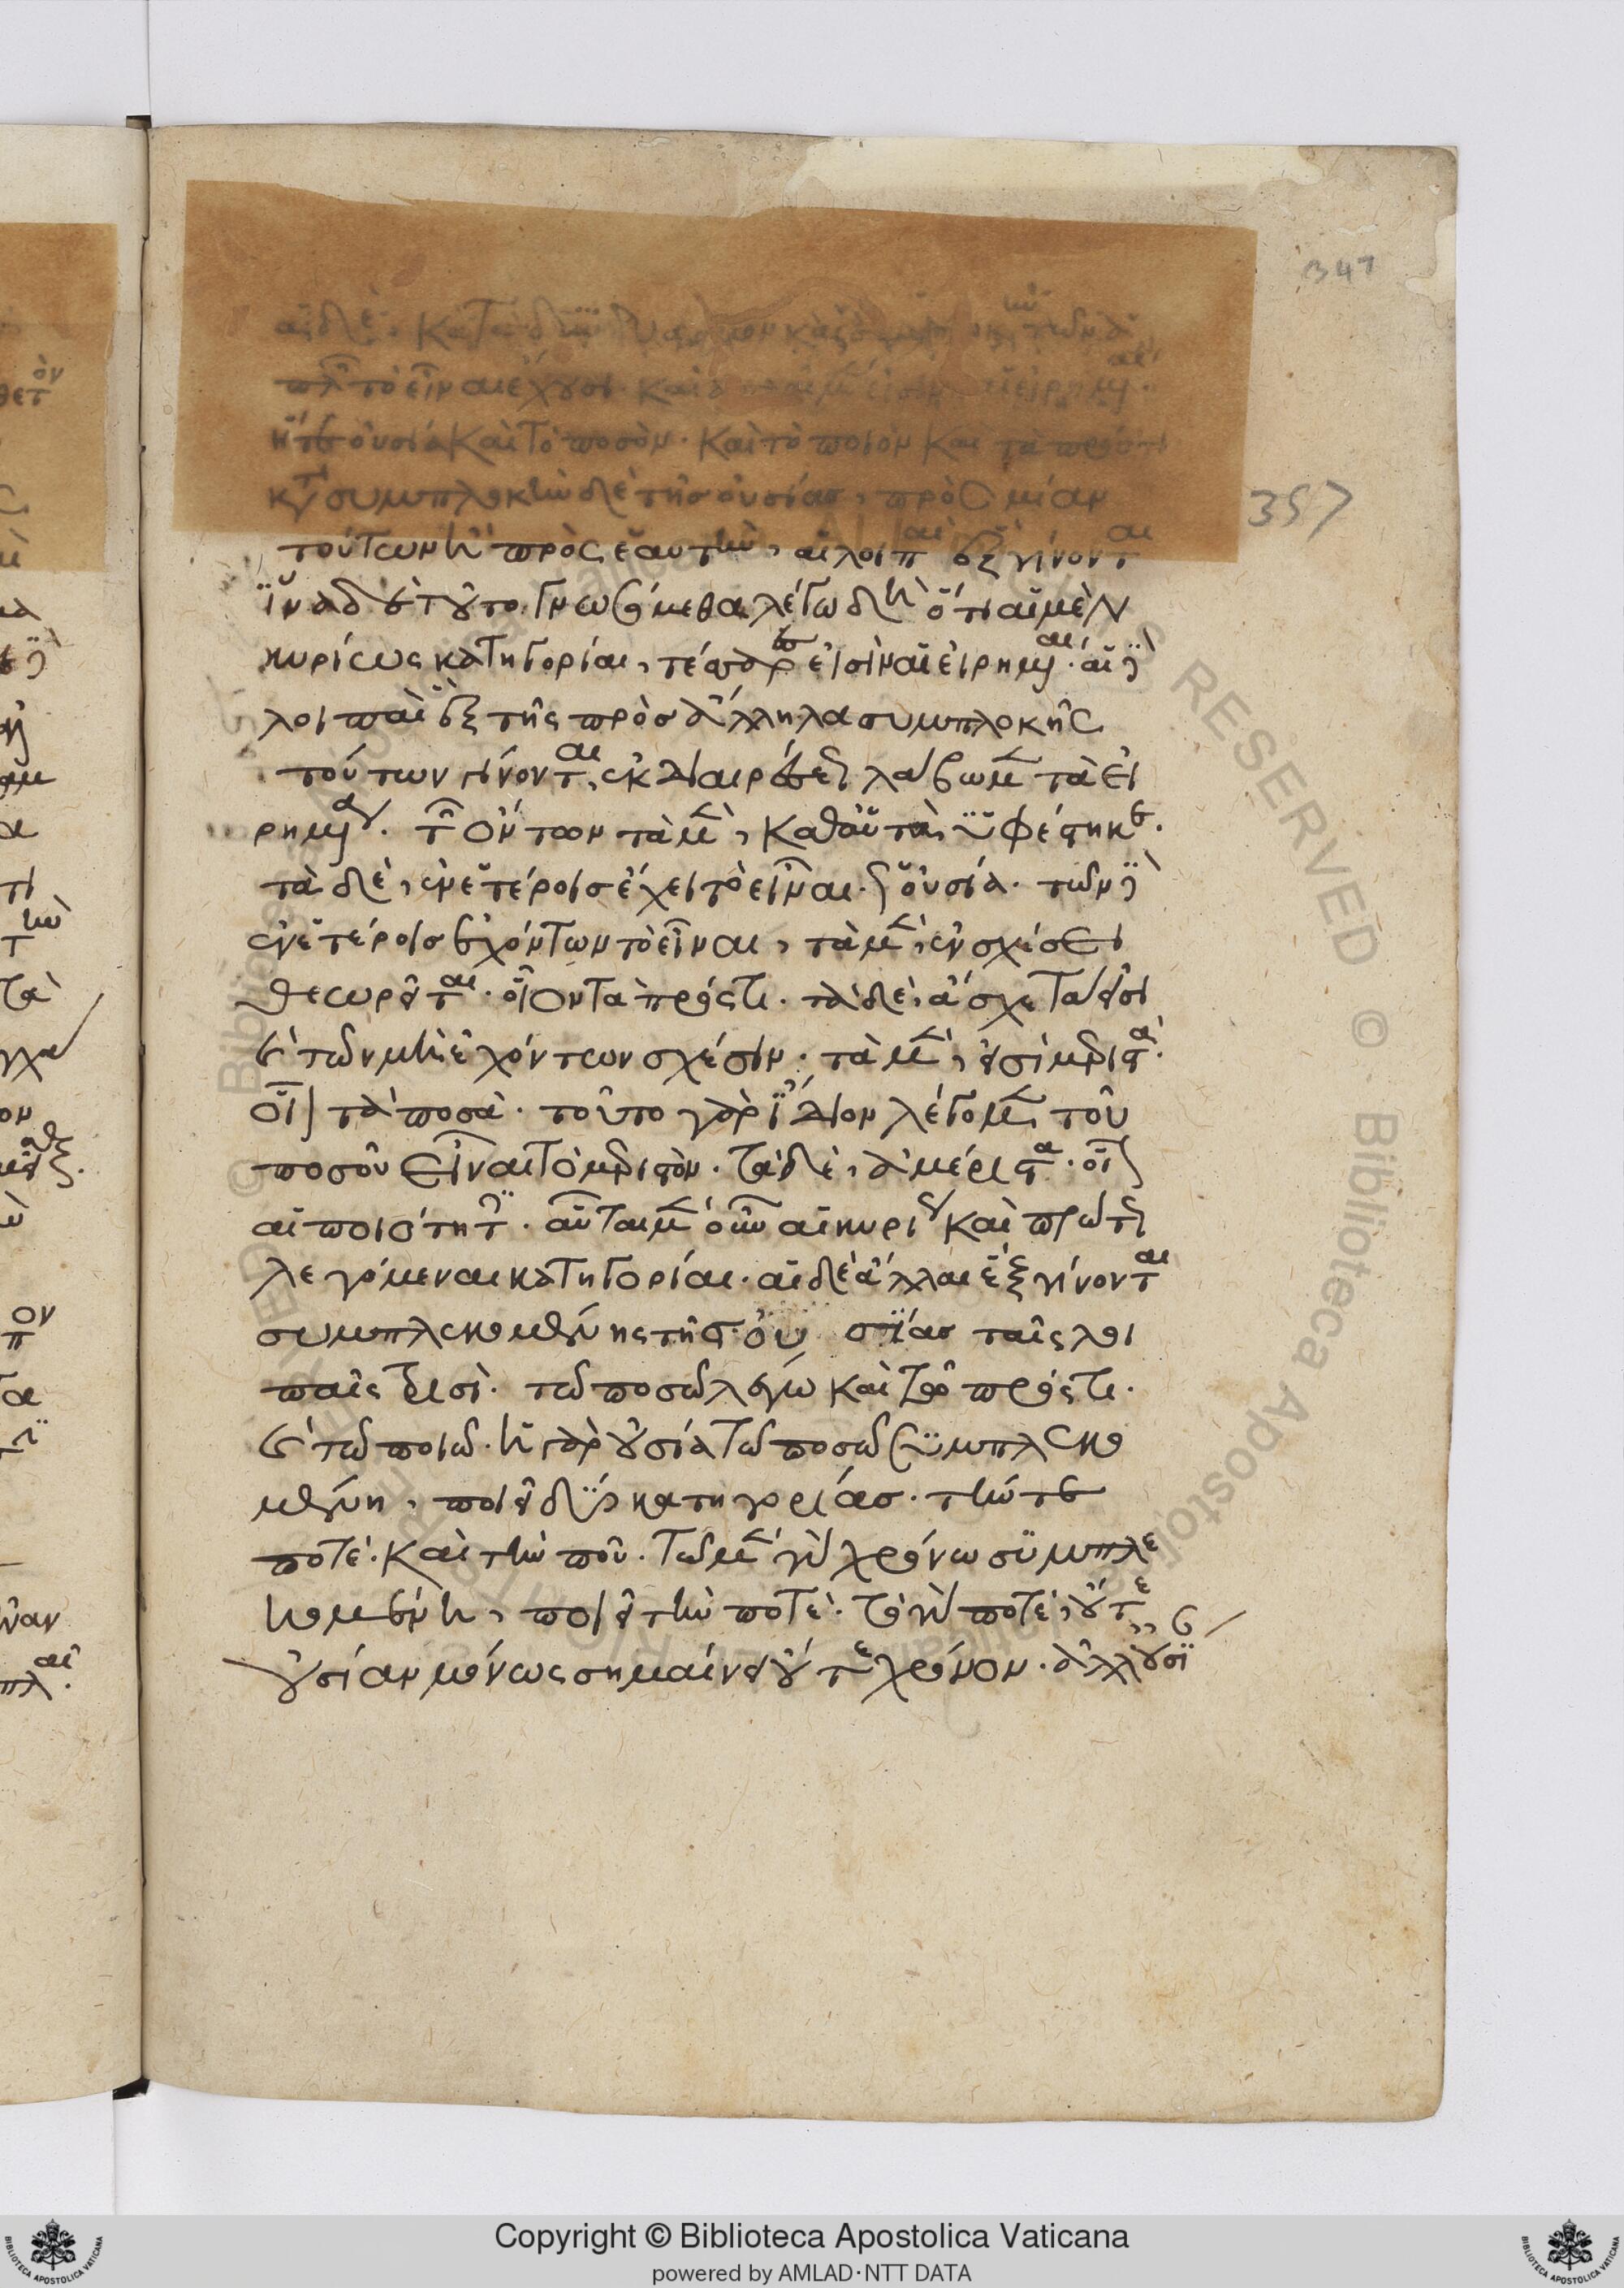 αἱ δὲ, κατὰ
ἁπλῶς τὸ εἶναι ἔχουσι. καὶ αἱ μὲν εἰσὶν αἱ εἰρημέναι.
ἥτε οὐσία καὶ τὸ ποσόν. καὶ τὸ ποιὸν καὶ τὰ πρός τι
κατὰ συμπλοκὴν δὲ τῆς οὐσίας, πρὸς μίαν
τούτων ἢ πρὸς ἑαυτὴν, αἱ λοιπαὶ ἓξ γίνονται
ἵνα δὲ τοῦτο γνωσόμεθα λέγω δὴ ὅτι αἱ μὲν
κυρίως κατηγορίαι, τέσσαρες εἰσὶν αἱ εἰρημέναι. αἱ δὲ
λοιπαὶ ἓξ τῆς πρὸς ἄλληλα συμπλοκῆς
τούτων γίνονται, ἐκ διαιρέσεως λάβωμεν τὰ εἰ
ρημένα. τῶν ὄντων τὰ μὲν, καθ' αὑτὰ ὑφέστηκε.
τὰ δὲ, ἐν ἑτέροις ἔχει τὸ εἶναι. ἡ οὐσία. τῶν δὲ
ἐν ἑτέροις ἐχόντων τὸ εἶναι, τὰ μὲν, ἐν σχέσει
θεωρεῖται. οἷον τὰ πρός τι. τὰ δὲ, ἄσχετα εἰσι
καὶ τῶν μὴ ἐχόντων σχέσιν. τὰ μὲν, εἰσὶ μεριστά.
οἷον τὰ ποσά. τοῦτο γὰρ ἴδιον λέγομεν τοῦ
ποσοῦ εἶναι τὸ μεριστόν. τὰ δὲ, ἀμέριστα. οἷον
αἱ ποιότητες. αὗται μὲν οὖν αἱ κυρίως καὶ πρώτως
λεγόμεναι κατηγορίαι. αἱ δὲ ἄλλαι ἓξ γίνονται
συμπλεκομένης τῆς οὐσίας ταῖς λοι
παῖς τρισί. τῷ ποσῷ λέγω καὶ τῷ πρός τι.
καὶ τῷ ποιῷ. ἡ γὰρ οὐσία τῷ ποσῷ συμπλεκο
μένη, ποιεῖ δύο κατηγορίας. τήν τε
ποτέ. καὶ τὴν ποῦ. τῷ μὲν γὰρ χρόνω συμπλε
κομένη, ποιεῖ τὴν ποτέ. τὸ γὰρ ποτέ, οὔτε
οὐσίαν μόνως σημαίνει οὔτε χρόνον. ἀλλ' οὐσί
347
357
Copyright © Biblioteca Apostolica Vaticana
powered by AMLAD·NTT DATA